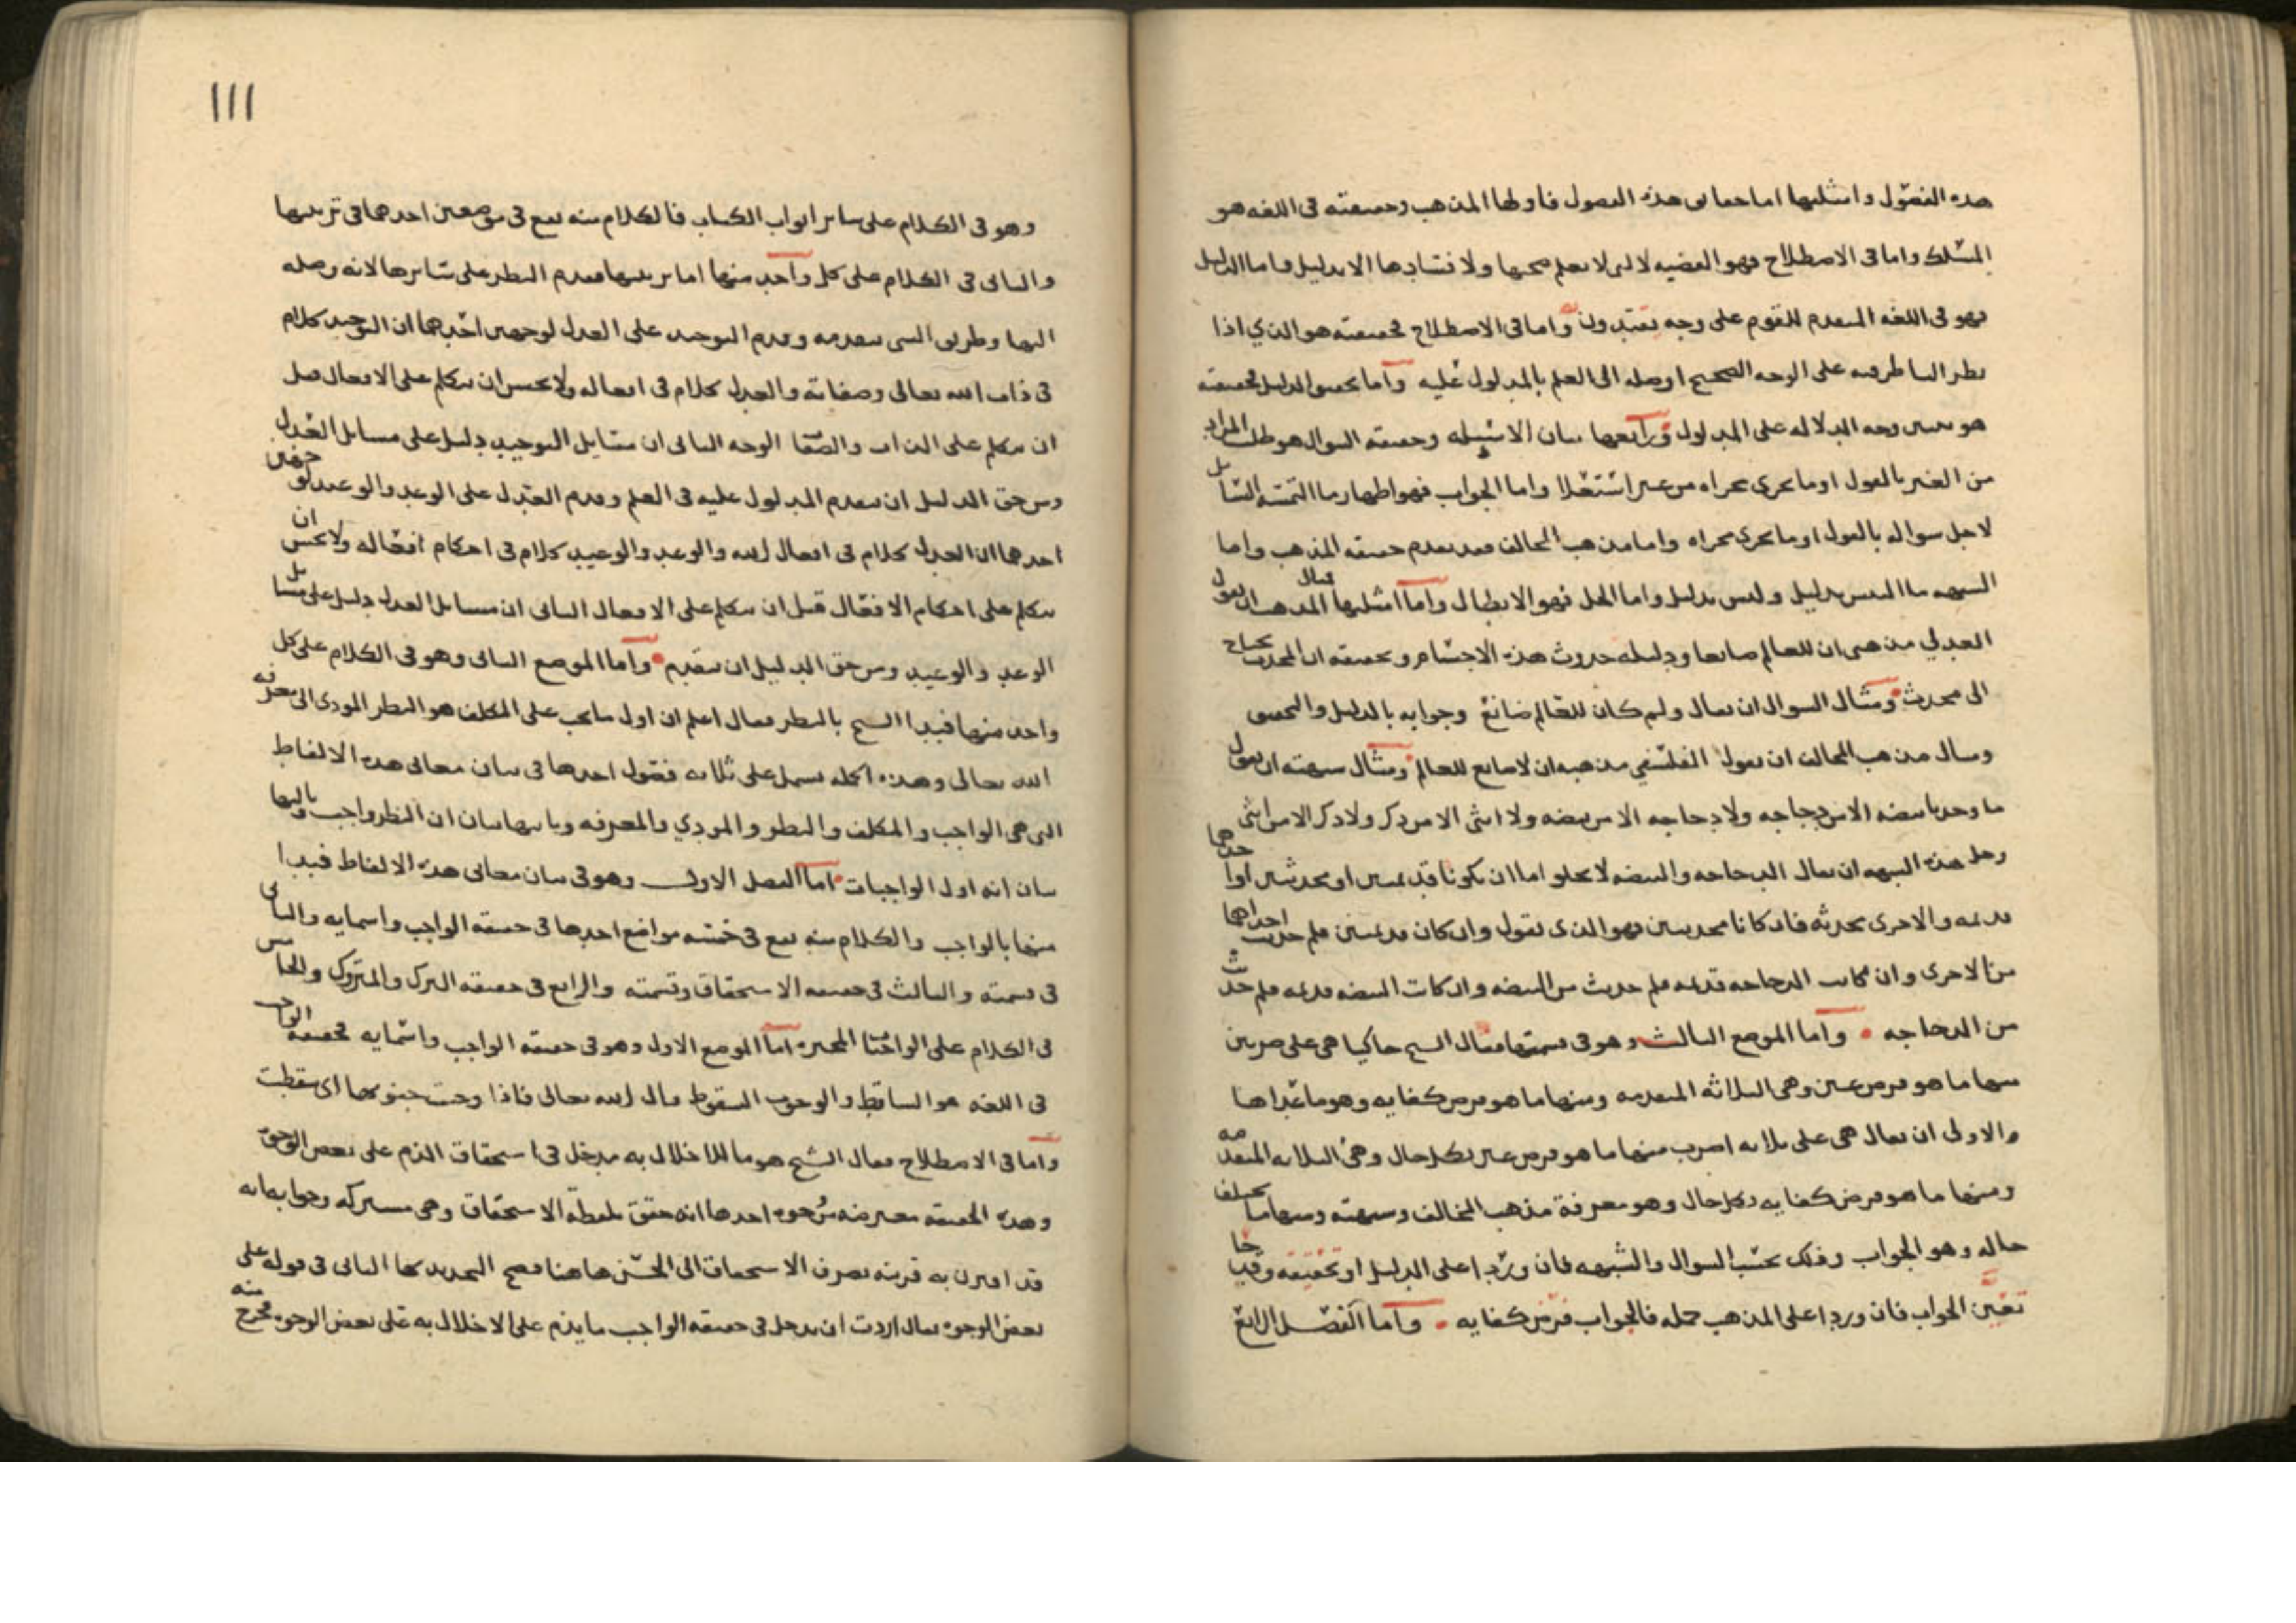 هذه الفصول وامثلتها اما حقايق هذه الفصول فاولها المذهب وحقيقته في اللغه هو
المسلك واما في الاصطلاح فهو القضيه لا يعلم صحتها ولا فسادها الا بدليل واما الدليل
فهو في اللغه المتقدم للقوم على وجه يقتدون واما في الاصطلاح فحقيقته هو الذي اذا
نظر الناظر فيه على الوجه الصحيح اوصله الى العلم بالمدلول عليه واما تحقيق الدليل فحقيقته
هو تعيين وجه الدلاله على المدلول ورابعها بيان الاسيله وحقيقه السوال هو طلب المراد
من الغير بالقول او ما يجري مجراه من غير استعلا واما الجواب فهو اظهار ما التمسه السايل
لاجل سواله بالقول او ما يجري مجراه واما مذهب المخالف فقد تقدم حقيقه المذهب واما
الشبهه ما التبس بدليل وليس بدليل واما الحل فهو الابطال واما امثلتها مثال المذهب ان يقول
العدلي مذهبي ان للعالم صانعا ودليله حدوث هذه الاجسام وتحقيقه ان المحدث يحتاج
الى محدث ومثال السوال ان يقال ولم كان للعالم صانع وجوابه بالدليل والتحقيق
ومثال مذهب المخالف ان يقول الفلسفي مذهبه ان لا صانع للعالم ومثال شبهته ان يقول
ما وجدنا بيضه الا من دجاجه ولا دجاجه الا من بيضه ولا انثى الا من ذكر ولا ذكر الا من انثى
وحل هذه الشبهه ان يقال الدجاجه والبيضه لا يخلو اما ان يكونا قديمين او محدثين او احدهما
قديمه والاخرى محدثه فان كانا محدثين فهو الذي نقول وان كان قديمين فلم حدثت احداهما
من الاخرى وان كانت الدجاجه قديمه فلم حدثت من البيضه وان كانت البيضه قديمه فلم حدثت
من الدجاجه واما الموضع الثالث وهو في قسمتها فقال الشيخ حاكيا هي على ضربين
منها ما هو فرض عين وهي الثلاثه المتقدمه ومنها ما هو فرض كفايه وهو ما عداها
والاولى ان يقال هي على ثلاثه اضرب منها ما هو فرض عين بكل حال وهي الثلاثه المتقدمه
ومنها ما هو فرض كفايه بكل حال وهو معرفة مذهب المخالف وشبهته ومنها ما يختلف
حاله وهو الجواب وذلك بحسب السوال والشبهه فان وردا على الدليل او تحقيقه وقدحا
تعين الجواب فان وردا على المذهب جمله فالجواب فرض كفايه واما الفصل الرابع
١١١
وهو في الكلام على ساير ابواب الكتاب فالكلام منه يقع في موضعين احدهما في ترتيبها
والثاني في الكلام على كل واحد منها اما ترتيبها فقدم النظر على سايرها لانه وصله
اليها وطريق الشي متقدمه وقدم التوحيد على العدل لوجهين احدهما ان التوحيد كلام
في ذات الله تعالى وصفاته والعدل كلام في افعاله ولا يحسن ان يتكلم على الافعال قبل
ان يتكلم على الذات والصفات الوجه الثاني ان مسايل التوحيد دليل على مسايل العدل
ومن حق الدليل ان يتقدم المدلول عليه في العلم وقدم العدل على الوعد والوعيد لوجهين
احدهما ان العدل كلام في افعال الله والوعد والوعيد كلام في احكام افعاله ولا يحسن ان
يتكلم على احكام الافعال قبل ان يتكلم على الافعال الثاني ان مسايل العدل دليل على مسايل
الوعد والوعيد ومن حق الدليل ان يتقدم واما الموضع الثاني وهو في الكلام على كل
واحد منها فبدا الشيخ بالنظر فقال اعلم ان اول ما يجب على المكلف هو النظر المودي الى معرفه
الله تعالى وهذه الجمله تشمل على ثلاثه فصول احدها في بيان معاني هذه الالفاظ
التي هي الواجب والمكلف والنظر والمودي والمعرفه وثانيها بيان ان النظر واجب وثالثها
بيان انه اول الواجبات اما الفصل الاول وهو في بيان معاني هذه الالفاظ فبدا
منها بالواجب والكلام منه يقع في خمسه مواضع احدها في حقيقه الواجب واسمايه والثاني
في قسمته والثالث في حقيقه الاستحقاق وقسمته والرابع في حقيقه الترك والمتروك والخامس
في الكلام على الواجبات المخيره اما الموضع الاول وهو في حقيقه الواجب واسمايه فحقيقه الواجب
في اللغه هو الساقط والوجوب السقوط قال الله تعالى فاذا وجبت جنوبها اي سقطت
واما في الاصطلاح فقال الشيخ هو ما للاخلال به مدخل في استحقاق الذم على بعض الوجوه
وهذه الحقيقه معترضه بوجوه احدها انه حقق بلفظة الاستحقاق وهي مشتركه وجوابه انه
قد اقترن به قرينه تصرف الاستحقاق الى الحسن هاهنا فصح التحديد بها الثاني في قوله على
بعض الوجوه يقال اردت ان يدخل في حقيقه الواجب ما يذم على الاخلال به على بعض الوجوه فخرج منه